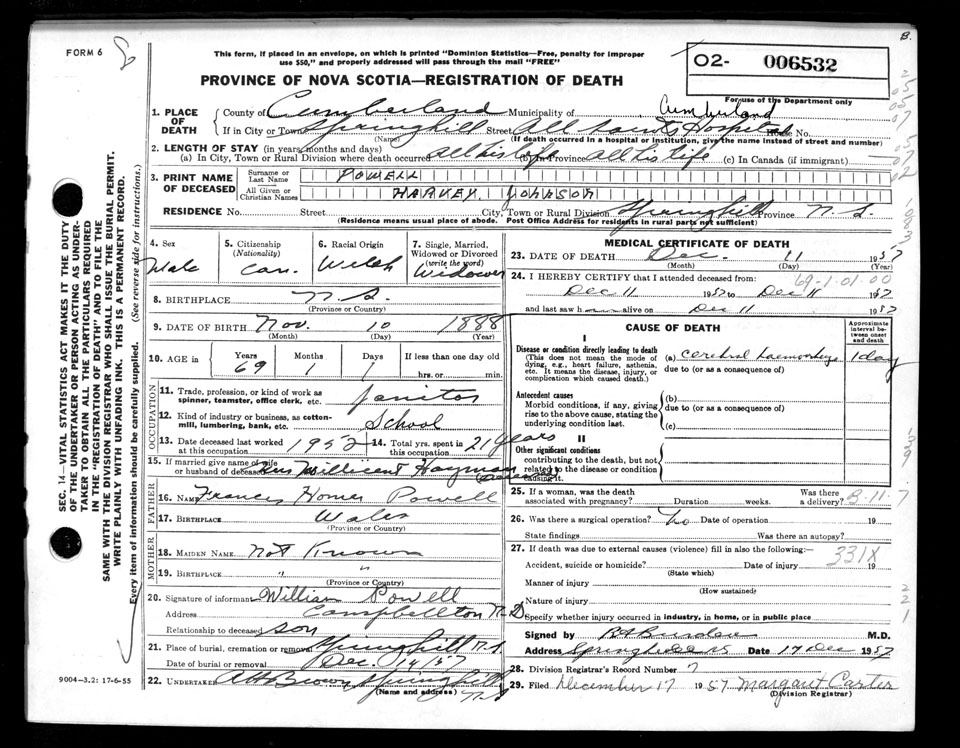 FORM 6
B.
This form, if placed in an envelope, on which is printed "Dominion Statistics—Free, penalty for improper
use $50," and properly addressed will pass through the mail "FREE"
PROVINCE OF NOVA SCOTIA—REGISTRATION OF DEATH
O2- 006532
For use of the Department only
1. PLACE OF DEATH
County of Cumberland Municipality of Cumberland
If in City or Town Springhill Street All Saints Hospital House No.
(Name) (If death occurred in a hospital or institution, give the name instead of street and number)
2. LENGTH OF STAY (in years, months and days)
(a) In City, Town or Rural Division where death occurred all his life (b) In Province all his life (c) In Canada (if immigrant)
3. PRINT NAME OF DECEASED
Surname or Last Name POWELL
All Given or Christian Names HARVEY JOHNSON
RESIDENCE No. Street City, Town or Rural Division Springhill Province N.S.
(Residence means usual place of abode. Post Office Address for residents in rural parts not sufficient)
4. Sex Male
5. Citizenship (Nationality) Can.
6. Racial Origin Welsh
7. Single, Married, Widowed or Divorced (write the word) Widower
8. BIRTHPLACE N.S.
(Province or Country)
9. DATE OF BIRTH Nov. 10 1888
(Month) (Day) (Year)
10. AGE in Years 69 Months 1 Days 1 If less than one day old
hrs. or min.
OCCUPATION
11. Trade, profession, or kind of work as spinner, teamster, office clerk, etc. Janitor
12. Kind of industry or business, as cotton-mill, lumbering, bank, etc. School
13. Date deceased last worked at this occupation 1952 14. Total yrs. spent in this occupation 21 years
15. If married give name of wife or husband of deceased Millicent Hayman
FATHER
16. NAME Frances Homer Powell
17. BIRTHPLACE Wales
(Province or Country)
MOTHER
18. MAIDEN NAME Not Known
19. BIRTHPLACE " "
(Province or Country)
20. Signature of informant William Powell
Address Campbellton
Relationship to deceased son
21. Place of burial, cremation or removal Springhill N.S.
Date of burial or removal Dec. 14/57
22. UNDERTAKER Brown Springhill N.S.
(Name and address)
9004-3.2: 17-6-55
MEDICAL CERTIFICATE OF DEATH
23. DATE OF DEATH Dec. 11 1957
(Month) (Day) (Year)
24. I HEREBY CERTIFY that I attended deceased from:
69-1-01-00
Dec 11 1957 to Dec 11 1957
and last saw h alive on Dec 11 1957
CAUSE OF DEATH
Approximate interval between onset and death
I
Disease or condition directly leading to death
(This does not mean the mode of dying, e.g., heart failure, asthenia, etc. It means the disease, injury, or complication which caused death.)
(a) Cerebral haemorrhage 1 day
due to (or as a consequence of)
Antecedent causes
Morbid conditions, if any, giving rise to the above cause, stating the underlying condition last.
(b)
due to (or as a consequence of)
(c)
II
Other significant conditions
contributing to the death, but not related to the disease or condition causing it.
25. If a woman, was the death associated with pregnancy? Duration weeks. Was there a delivery?
26. Was there a surgical operation? No Date of operation 19
State findings Was there an autopsy?
27. If death was due to external causes (violence) fill in also the following:
331X
Accident, suicide or homicide? Date of injury 19
(State which)
Manner of injury
(How sustained)
Nature of injury
Specify whether injury occurred in industry, in home, or in public place
Signed by M.D.
Address Springhill NS Date 17 Dec 1957
28. Division Registrar's Record Number 7
29. Filed December 17 1957 Margaret Carter
(Division Registrar)
SEC. 14—VITAL STATISTICS ACT MAKES IT THE DUTY
OF THE UNDERTAKER OR PERSON ACTING AS UNDER-
TAKER TO OBTAIN ALL THE PARTICULARS REQUIRED
IN THE "REGISTRATION OF DEATH" AND TO FILE THE
SAME WITH THE DIVISION REGISTRAR WHO SHALL ISSUE THE BURIAL PERMIT.
WRITE PLAINLY WITH UNFADING INK. THIS IS A PERMANENT RECORD.
Every item of information should be carefully supplied. (See reverse side for instructions.)